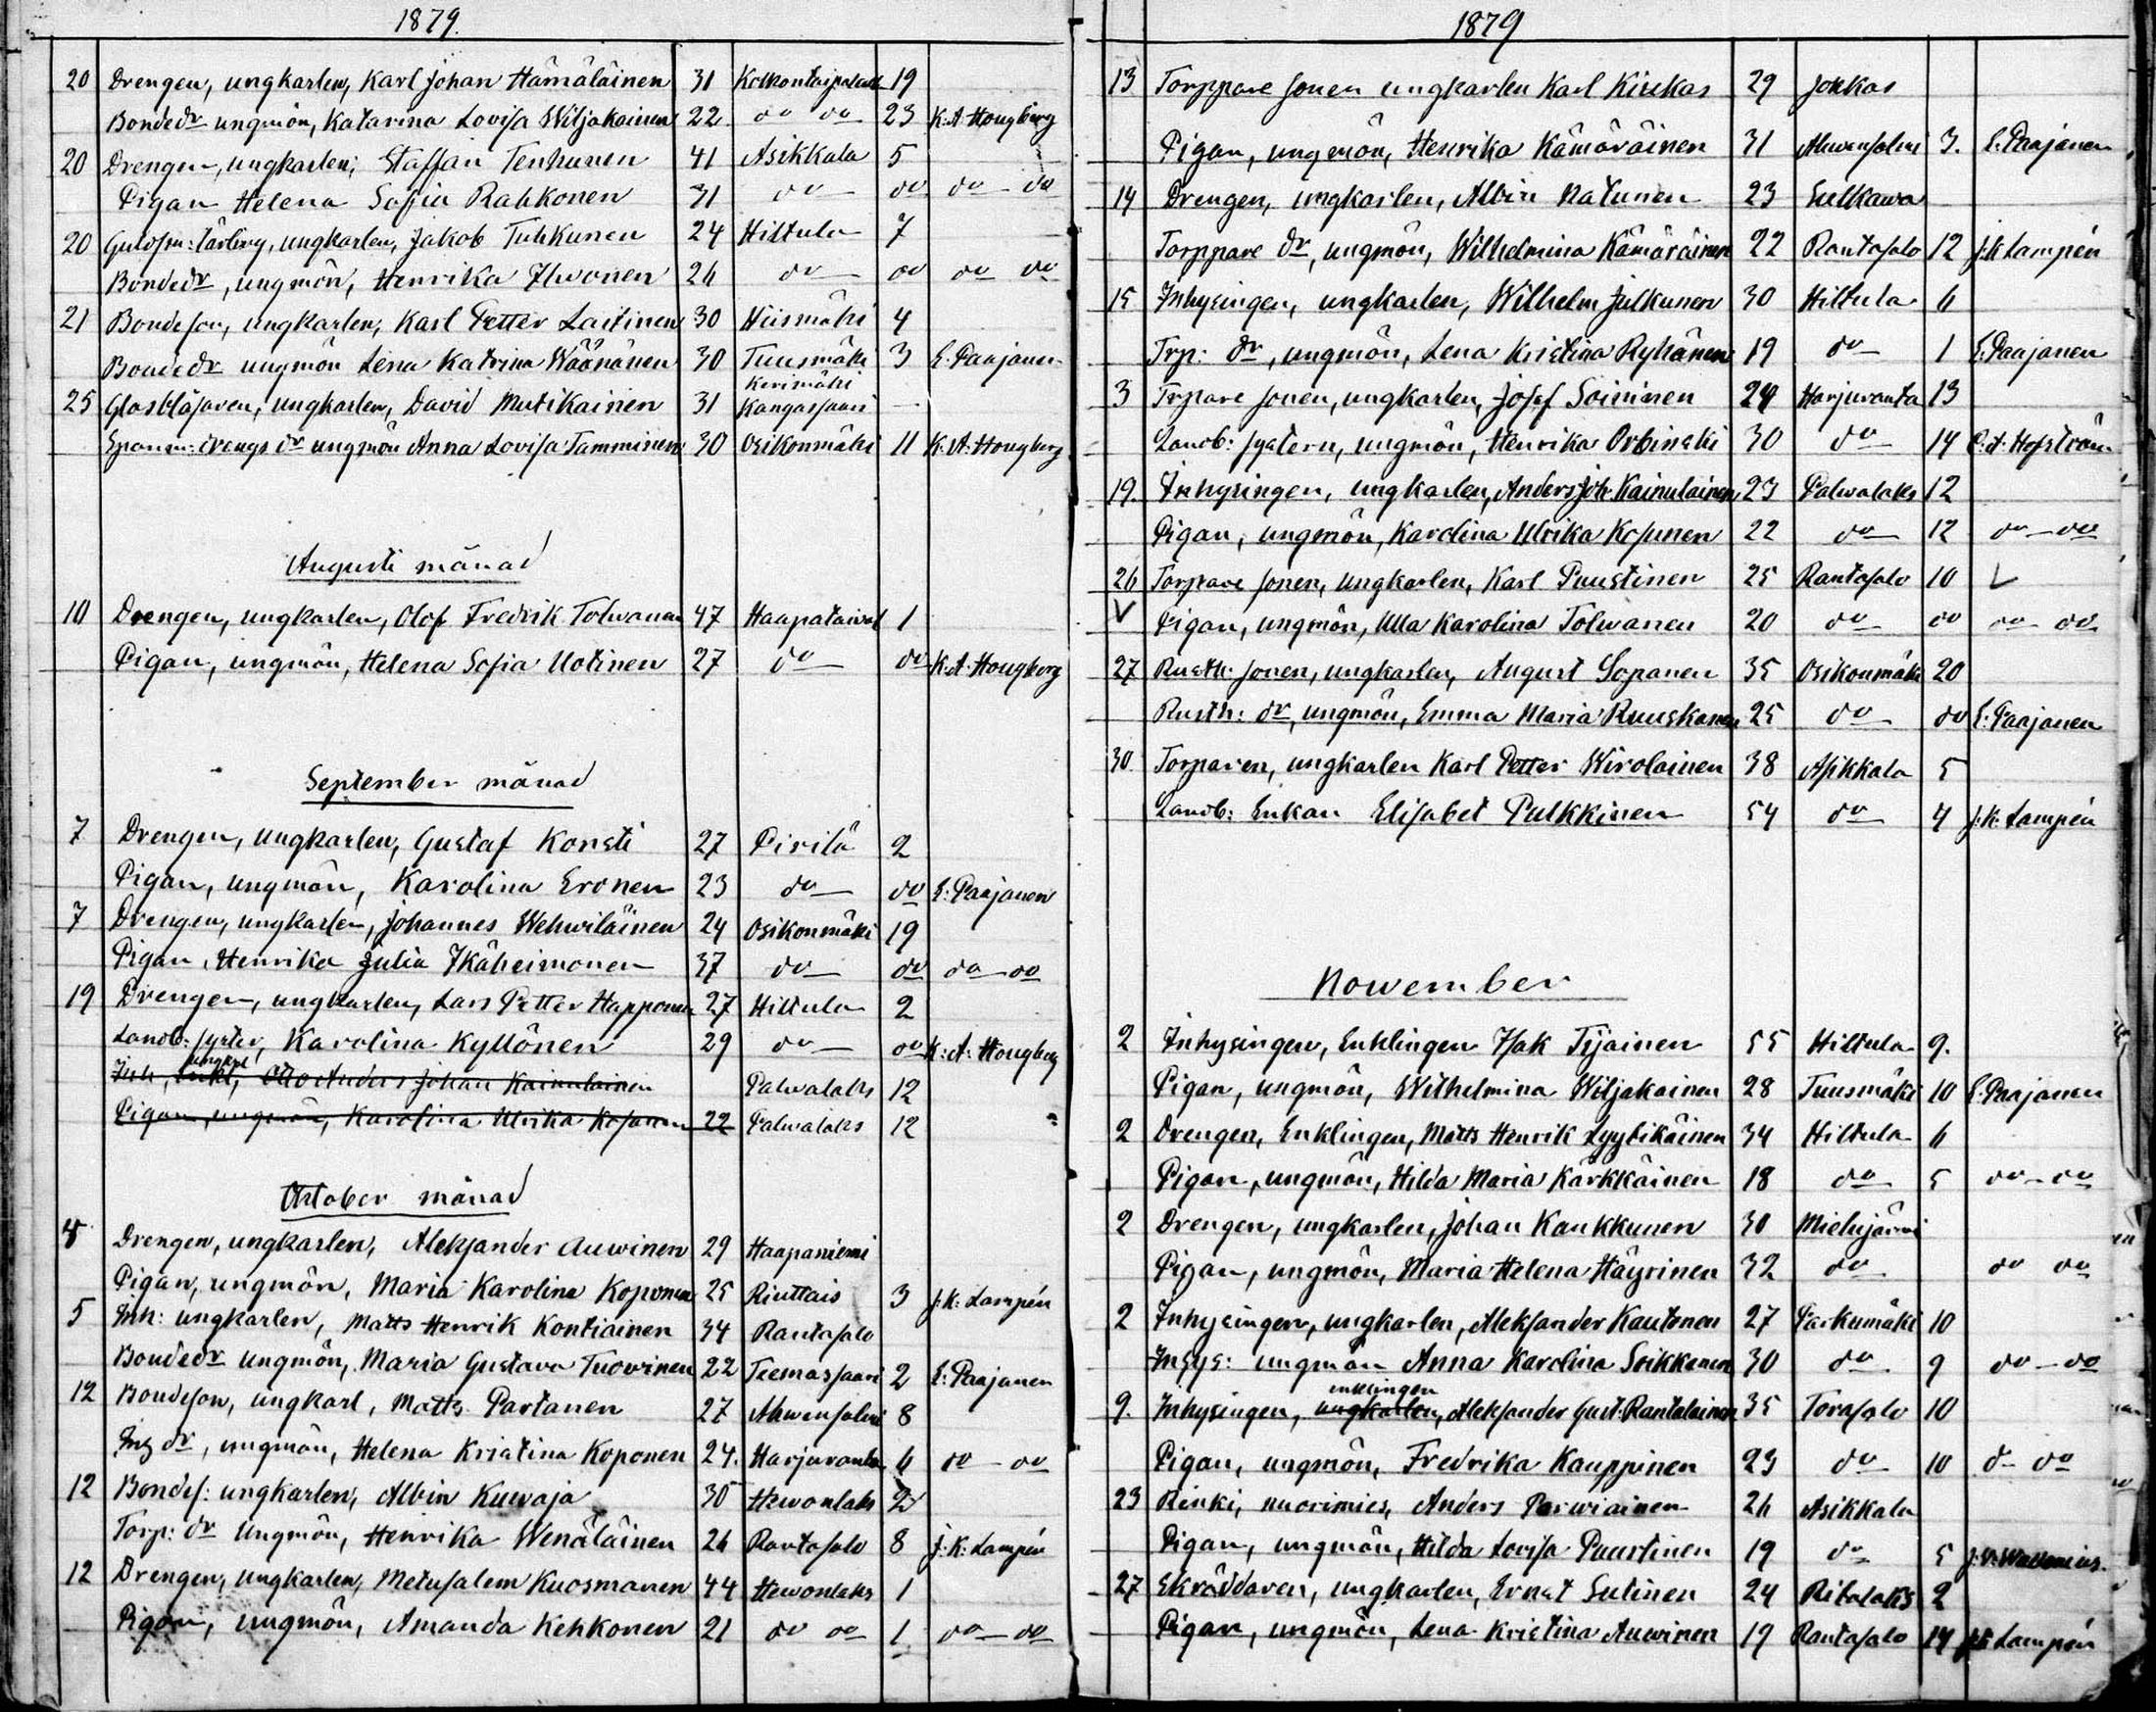 1879.
20 Drengen, ungkarlen, Karl Johan Hämäläinen 31 Kolkontaipale 19
Bondedr ungmön, Katarina Lovisa Wiljakainen 22 do do 23 K. A. Hougberg
20 Drengen, ungkarlen, Staffan Tenhunen 41 Asikkala 5
Pigan Helena Sofia Rahkonen 31 do do do do
20 ungkarlen, Jakob Tuhkunen 24 Hiltula 7
Bondedr, ungmön, Henrika Ihvonen 26 do do do do
21 Bondeson, ungkarlen, Karl Petter Laitinen 30 Hiismäki 4
Bondedr ungmön Lena Katrina Wäänänen 30 Tuusmäki 3 E. Paajanen
Kerimäki
25 Glasblåsaren, ungkarlen, David Mutikainen 31 Kangassaari
drengs dr ungmön Anna Lovisa Tamminen 30 Osikonmäki 11 K. A. Hougberg
Augusti månad
10 Drengen, ungkarlen, Olof Fredrik Tolwanen 47 Haapataival 1
Pigan, ungmön, Helena Sofia Uotinen 27 do do K. A. Hougberg
September månad
7 Drengen, ungkarlen, Gustaf Konsti 27 Pirilä 2
Pigan, ungmön, Karolina Eronen 23 do do E. Paajanen
7 Drengen, ungkarlen, Johannes Wehwiläinen 24 Osikonmäki 19
Pigan, Henrika Julia Ikäheimonen 37 do do do do
19 Drengen, ungkarlen, Lars Petter Happonen 27 Hiltula 2
Landb: syster, Karolina Kyllönen 29 do do K. A. Hougberg
Inh, Otto Anders Johan Kainulainen Palwalaks 12
Pigan, ungmön, Karolina Ulrika Kosunen 22 Palwalaks 12
October månad
4 Drengen, ungkarlen, Aleksander Auwinen 29 Haapaniemi
Pigan, ungmön, Maria Karolina Koponen 25 Riuttais 3 J. K. Lampén
5 Inh: ungkarlen, Matts Henrik Kontiainen 34 Rantasalo
Bondedr ungmön, Maria Gustava Tuowinen 22 Teemassaari 2 E. Paajanen
12 Bondeson, ungkarl, Matts Partanen 27 Ahwensalmi 8
dr, ungmön, Helena Kristina Koponen 24. Harjuranta 6 do do
12 Bondes: ungkarlen, Albin Kuwaja 30 Hewonlaks 2
Torp: dr Ungmön, Henrika Wenäläinen 26 Rantasalo 8 J. K. Lampén
12 Drengen, ungkarlen, Metusalem Kuosmanen 44 Hewonlaks 1
Pigan, ungmön, Amanda Kehkonen 21 do do 1 do do
1879
13 Torppare sonen ungkarlen Karl Kiukas 29 Jokkas
Pigan, ungmön, Henrika Kämäräinen 31 Ahwensalmi 3. E. Paajanen
14 Drengen, ungkarlen, Albin Natunen 23 Sulkawa
Torppare dr, ungmön, Wilhelmina Kämäräinen 22 Rantasalo 12 J. K. Lampén
15 Inhysingen, ungkarlen, Wilhelm Julkunen 30 Hiltula 6
Trp: dr, ungmön, Lena Kristina Ryhänen 19 do 1 E. Paajanen
3 Trpare sonen, ungkarlen, Josef Soininen 24 Harjuranta 13
Landb: systern, ungmön, Henrika Orbinski 30 do 14 C. A. Hofström
19. Inhysingen, ungkarlen, Anders Joh. Kainulainen 23 Palwalaks 12
Pigan, ungmön, Karolina Ulrika Kosunen 22 do 12 do do
26 Torpare sonen, ungkarlen, Karl Puustinen 25 Rantasalo 10
Pigan, ungmön, Ulla Karolina Tolwanen 20 do do do do
27 Rusth: sonen, ungkarlen, August Sopanen 35 Osikonmäki 20
Rusth: dr, ungmön, Emma Maria Ruuskanen 25 do do E. Paajanen
30 Torparen, ungkarlen Karl Petter Wirolainen 38 Asikkala 5
Landb: Enkan Elisabet Pulkkinen 54 do 4 J. K. Lampén
Nowember
2 Inhysingen, Enklingen Isak Tijainen 55 Hiltula 9.
Pigan, ungmön, Wilhelmina Wiljakainen 28 Tuusmäki 10 E. Paajanen
2 Drengen, Enklingen, Matts Henrik Lyytikäinen 34 Hiltula 6
Pigan, ungmön, Hilda Maria Kärkkäinen 18 do 5 do do
2 Drengen, ungkarlen, Johan Kaukkunen 30 Mielujärvi
Pigan, ungmön, Maria Helena Häyrinen 32 do do do
2 Inhysingen, ungkarlen, Aleksander Kautonen 27 Parkumäki 10
Inhys: ungmön Anna Karolina Soikkanen 30 do 9 do do
enklingen
9. Inhysingen, ungkarlen, Aleksander Gust. Rantalainen 35 Torasalo 10
Pigan, ungmön, Fredrika Kauppinen 23 do 10 do do
23 Renki, nuorimies, Anders Parwiainen 26 Asikkala
Pigan, ungmön, Hilda Lovisa Puustinen 19 do 5
27 Skräddaren, ungkarlen, Ernst Sutinen 24 Ritalaks 2
Pigan, ungmön, Lena Kristina Auwinen 19 Rantasalo 14 J. K. Lampén